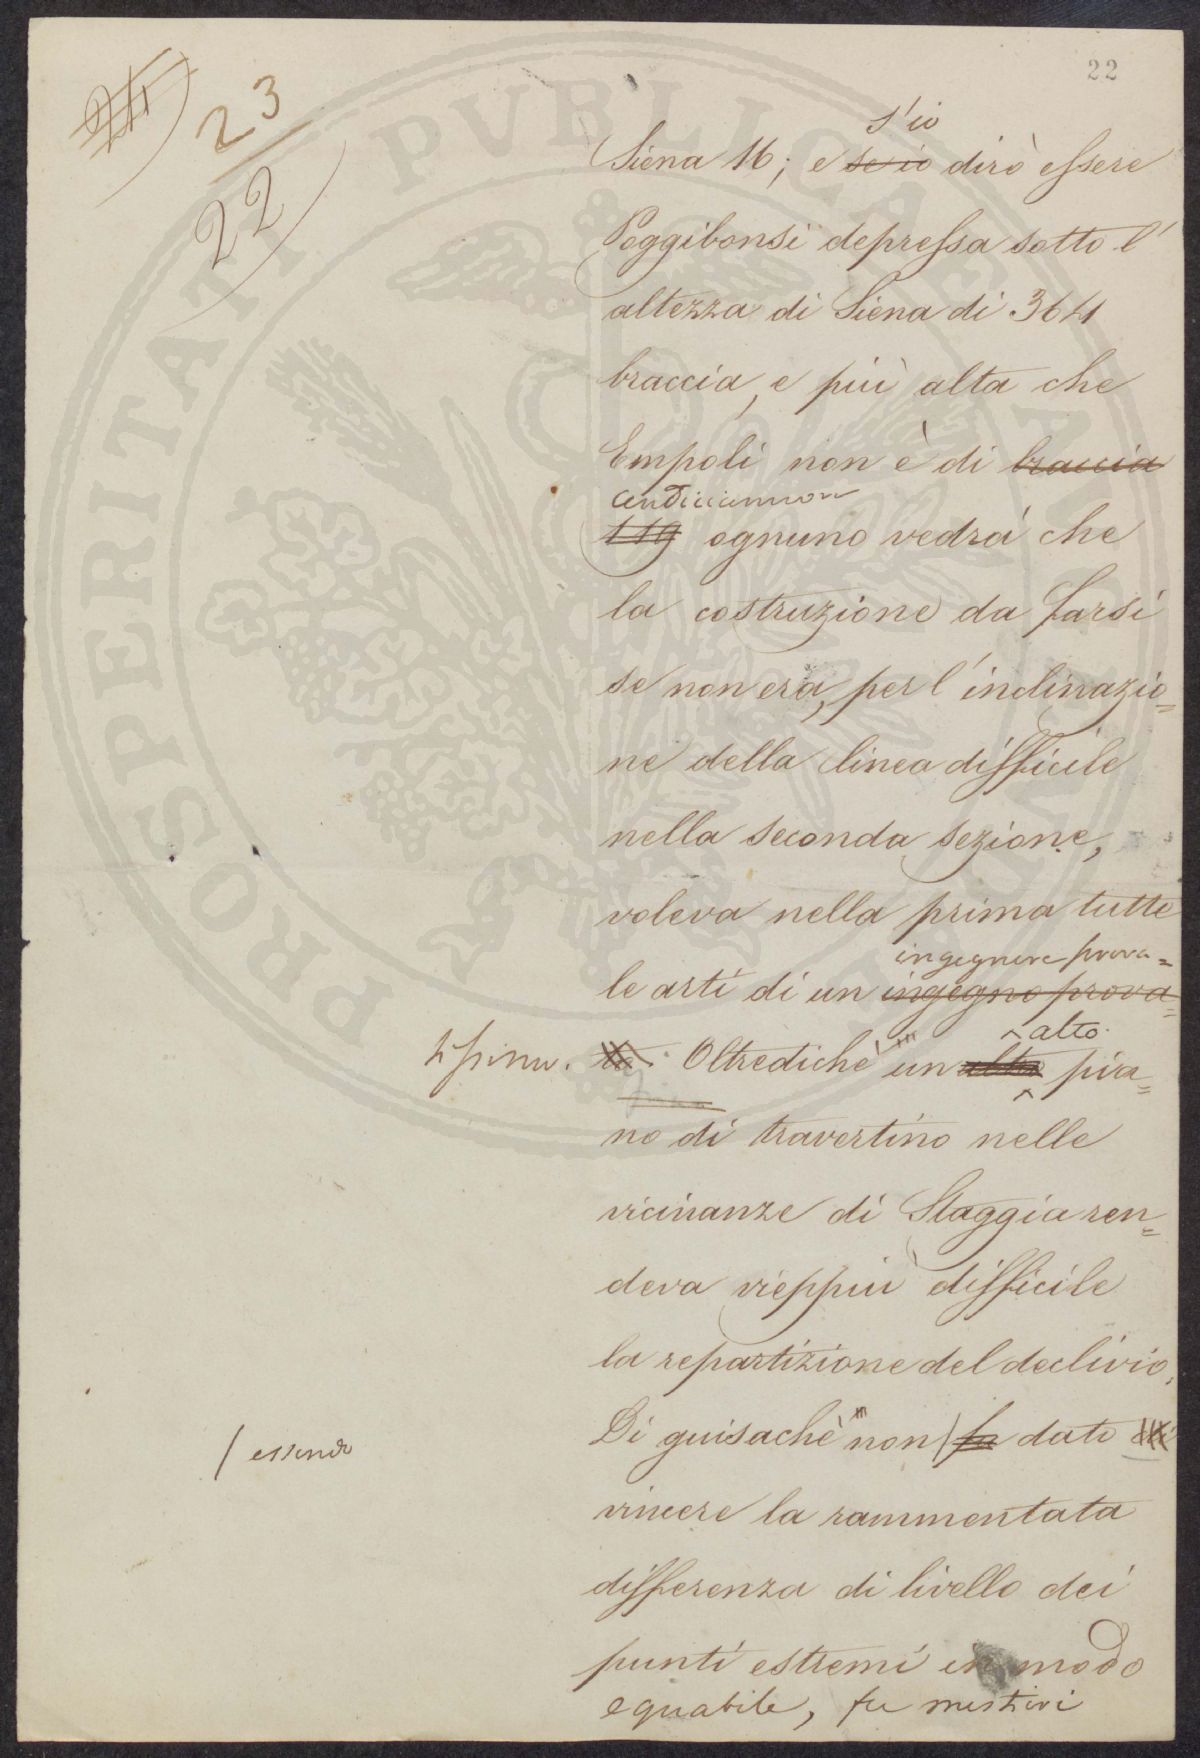 22
24
23
22
s'io
Siena 16; e se io dirò essere
Poggibonsi depressa sotto l'
altezza di Siena di 364
braccia, e più alta che
Empoli non è di braccia
119 ognuno vedrà che
la costruzione da farsi
se non era, per l'inclinazio=
ne della linea difficile
nella seconda sezione,
voleva nella prima tutte
ingegnere prova=
le arti di un ingegno prova=
alto
to. Oltredichè un alto pia=
no di travertino nelle
vicinanze di Staggia ren=
deva vieppiù difficile
la repartizione del declivio.
Di guisachè non fu dato di
/ essendo
vincere la rammentata
differenza di livello dei
punti estremi in modo
equabile, fu mestieri
PROSPERITATI PVBLICAE AVGENDAE